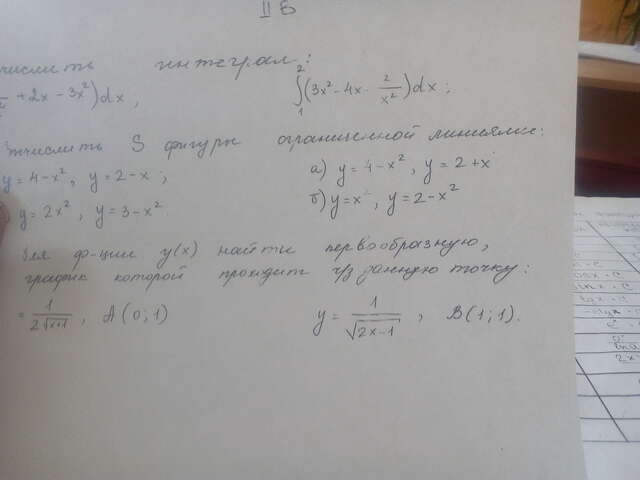 II В
числить интеграл:
+ 2x - 3x²)dx, ∫₁²(3x² - 4x - 2/x²)dx;
числить S фигуры ограниченной линиями:
y = 4 - x², y = 2 - x; а) y = 4 - x², y = 2 + x
y = 2x², y = 3 - x² б) y = x², y = 2 - x²
Для ф-ции y(x) найти первообразную,
график которой проходит ч/з данную точку:
= 1/(2√(x+1)), A(0;1) y = 1/√(2x-1), B(1;1).